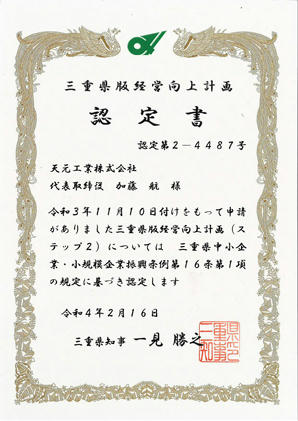 三重県版経営向上計画
認定書
認定第2-4487号
天元工業株式会社
代表取締役 加藤 航 様
令和3年11月10日付けをもって申請
がありました三重県版経営向上計画(ス
テップ2)については 三重県中小企
業・小規模企業振興条例第16条第1項
の規定に基づき認定します
令和4年2月16日
三重県知事 一見 勝之
三重県知事印